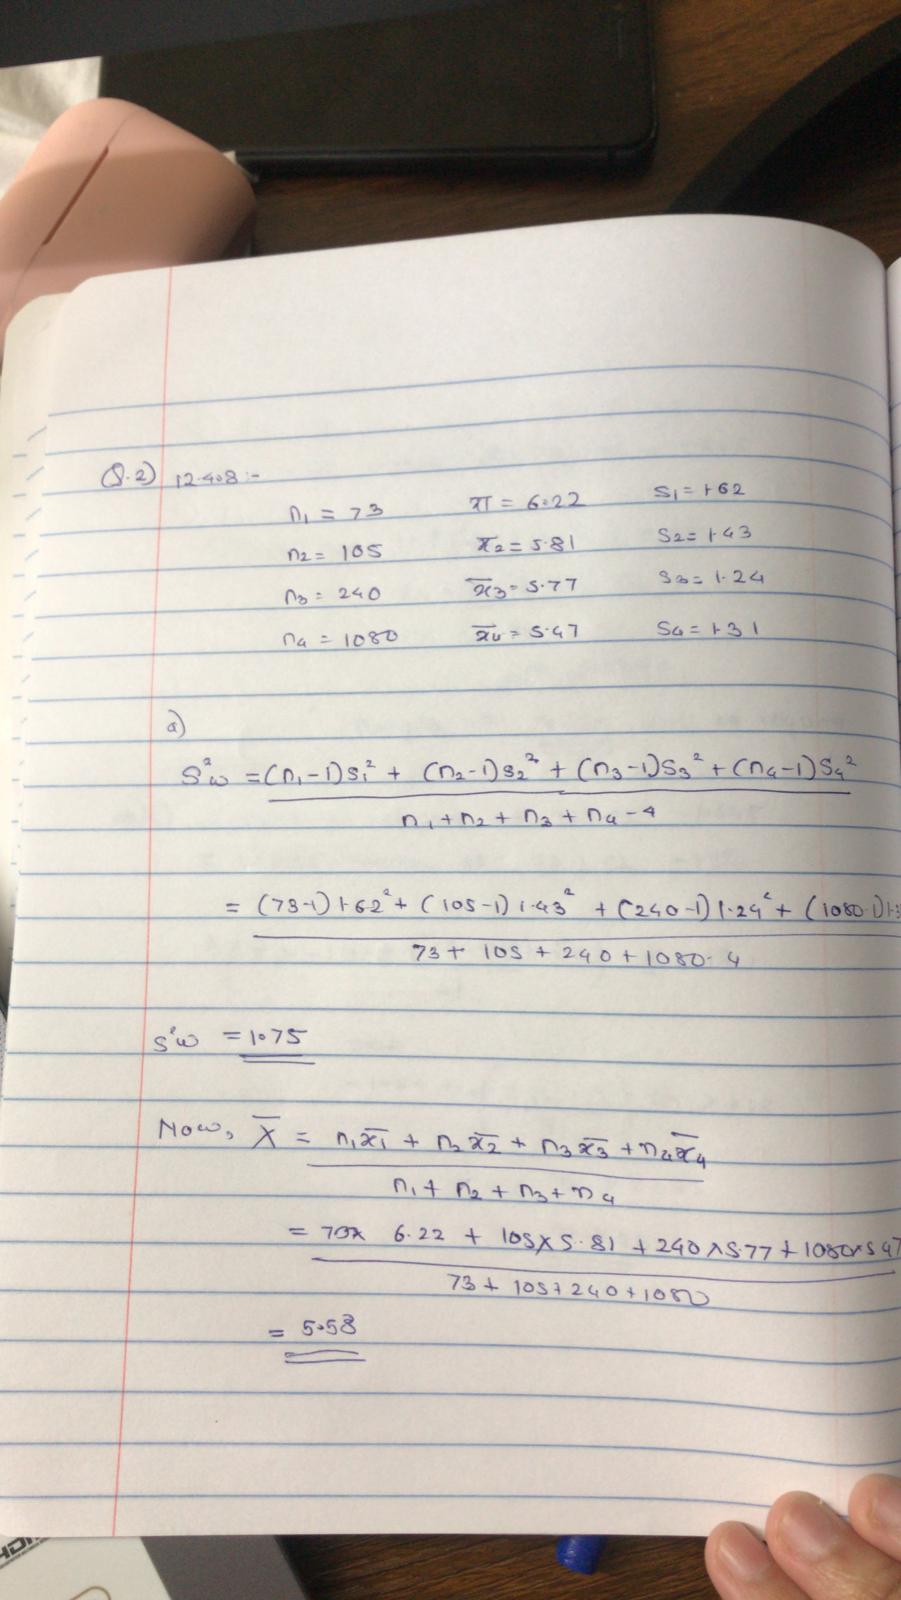 Q.2) 12.4.8 :-
n₁ = 73 x̄1 = 6.22 S₁ = 1.62
n₂ = 105 x̄₂ = 5.81 S₂ = 1.43
n₃ = 240 x̄₃ = 5.77 S₃ = 1.24
n₄ = 1080 x̄₄ = 5.47 S₄ = 1.31
a)
S²w = (n₁-1)S₁² + (n₂-1)S₂² + (n₃-1)S₃² + (n₄-1)S₄²
n₁ + n₂ + n₃ + n₄ - 4
= (73-1)1.62² + (105-1)1.43² + (240-1)1.24² + (1080-1)1.3
73 + 105 + 240 + 1080 - 4
S²w = 1.75
Now, X̄ = n₁x̄₁ + n₂x̄₂ + n₃x̄₃ + n₄x̄₄
n₁ + n₂ + n₃ + n₄
= 73x 6.22 + 105x5.81 + 240x5.77 + 1080x5.47
73 + 105 + 240 + 1080
= 5.58